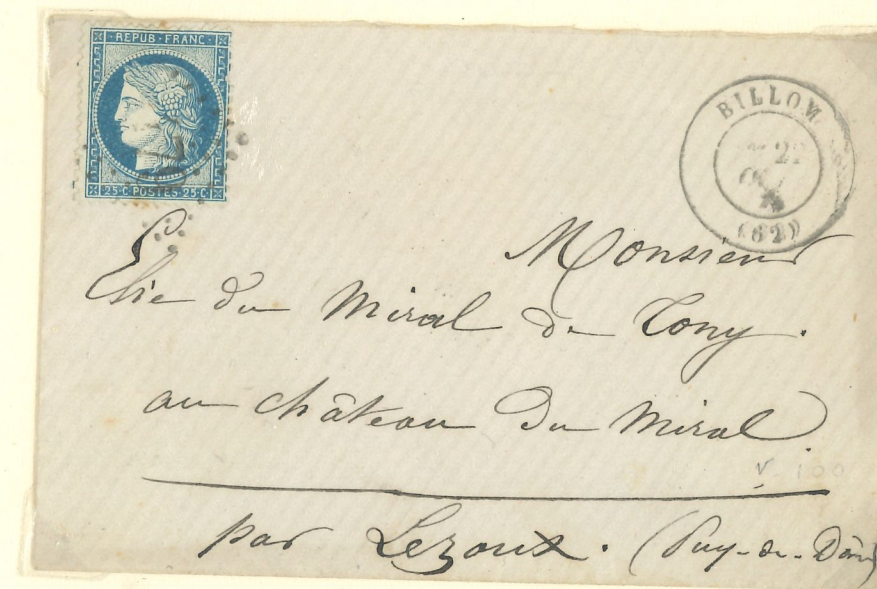 REPUB·FRANC·
25·C·POSTES·25·C·
BILLOM
27
(62)
Monsieur
Elie du Miral de Tony.
au château du Miral
par Lezoux. (Puy-de-Dôme)